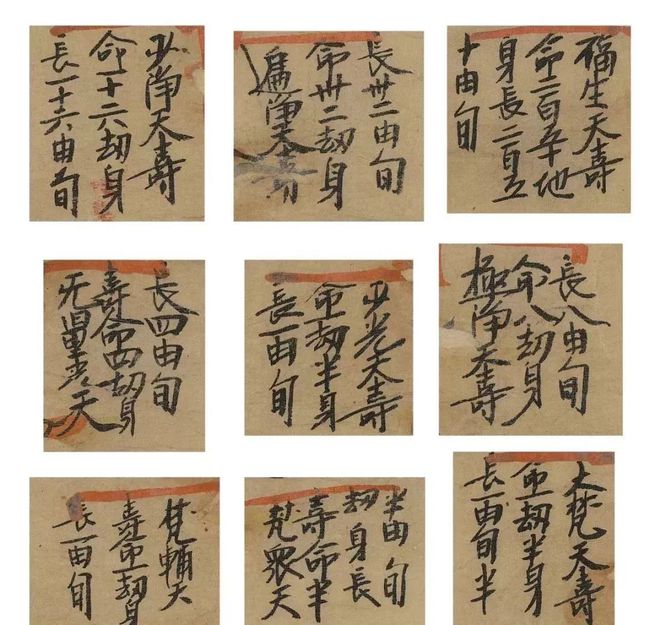 少淨天壽
命一十六劫身
長一十六由旬
遍淨天壽
命卅二劫身
長卅二由旬
福生天壽
命二百五十地
身長二百五
十由旬
无量光天
壽命四劫身
長四由旬
少光天壽
命劫半身
長一由旬
極淨天壽
命八劫身
長八由旬
梵輔天
壽命一劫身
長一由旬
梵眾天
壽命半
劫身長
半由旬
大梵天壽
命一劫半身
長一由旬半